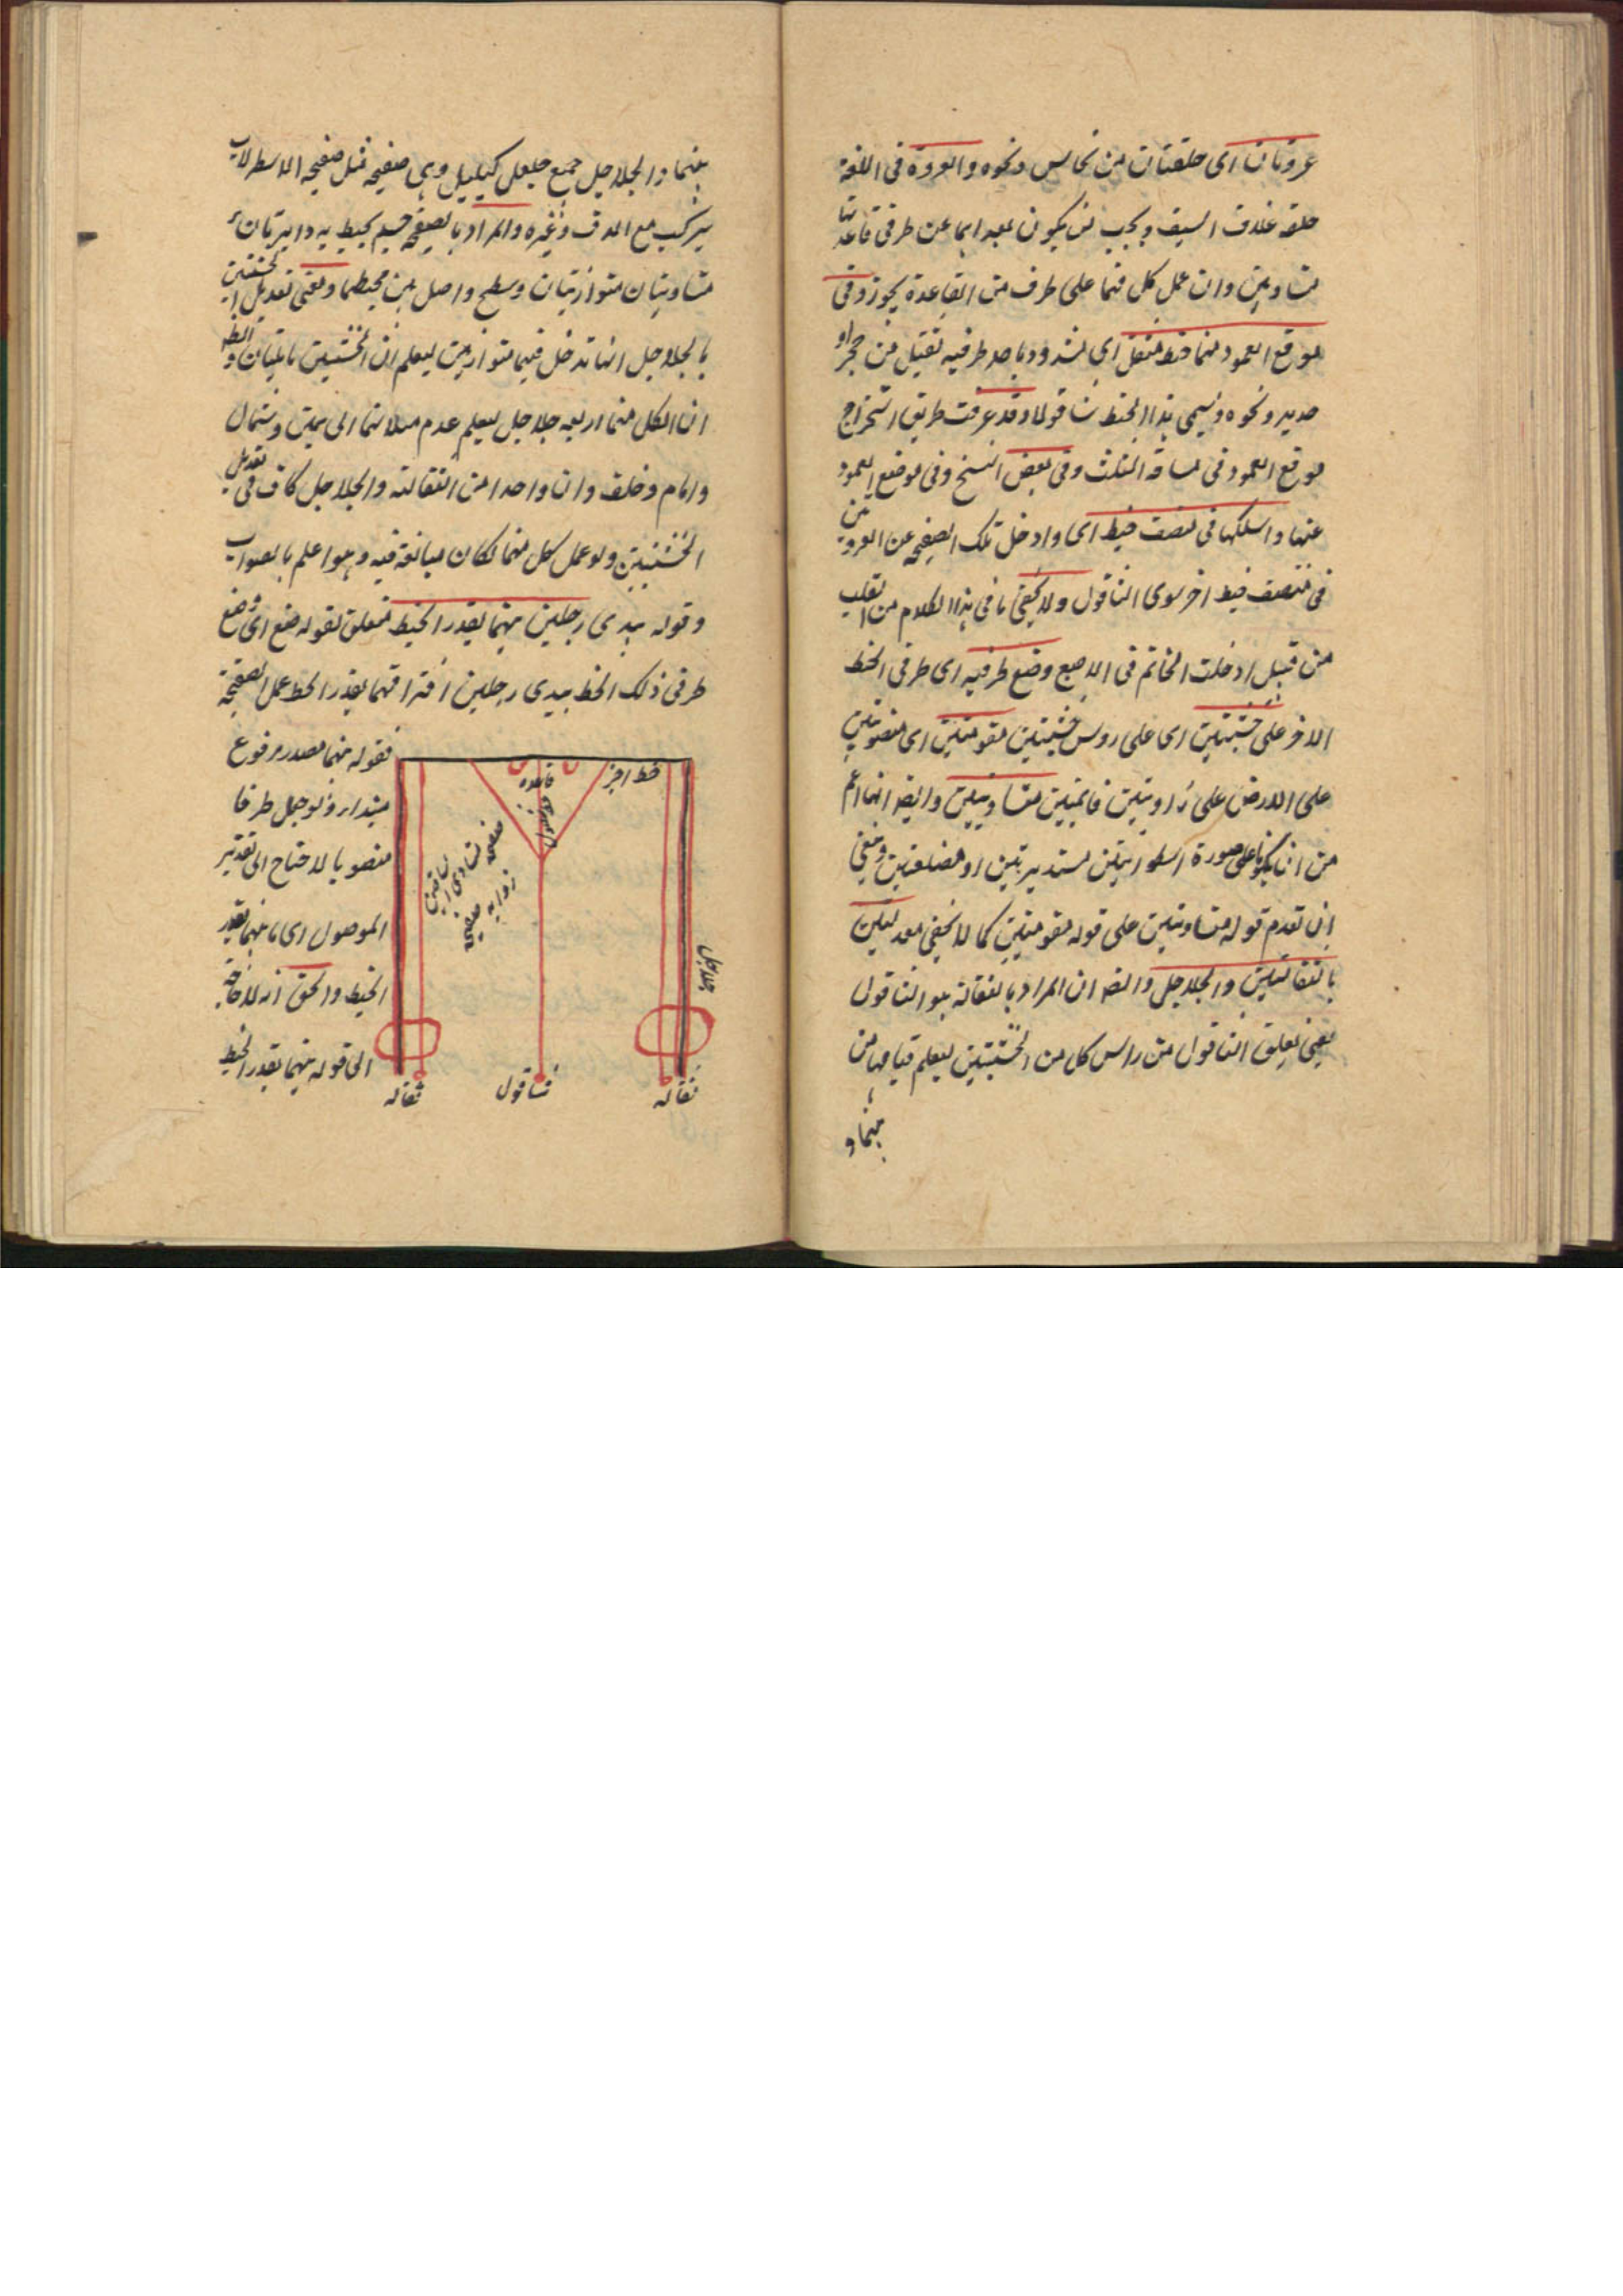 عروتان اى حلقتان من نحاس ونحوه والعروة فى اللغة
حلقه غلاف السيف ويجب ان يكون بعد ابهما عن طرفى قاعدتها
متساويين وان عمل كل منهما على طرف من القاعدة يجوز وفى
موقع العمود منهما خيط مثقل اى مشدود باحد طرفيه ثقيل من حجر او
حديد ونحوه ويسمى هذا الخيط شاقولا وقد عرفت طريق استخراج
موقع العمود فى مساحة المثلث وفى بعض النسخ وفى موضع العمود
عنها واسلكها فى منتصف خيط اى وادخل تلك الصفيحه عن العروتين
فى منتصف خيط اخر سوى الشاقول ولا يخفى ما فى هذا الكلام من القلب
من قبيل ادخلت الخاتم فى الاصبع وضع طرفيه اى طرفى الخط
الاخر على خشبتين اى على روس خشبتين مقومتين اى منصوبتين
على الارض على زاويتين قائمتين متساويتين وايضا انهما اعم
من ان يكونا على صورة اسطوانتين مستديرتين او مضلعتين وينبغى
ان تقدم قوله متساويتين على قوله مقومتين كما لا يخفى معدلتين
بالثقالتين والجلاجل والظ ان المراد بالثقالة هو الشاقول
يعنى تعلق الشاقول من راس كل من الخشبتين ليعلم قيامهما من
منهما و
منهما والجلاجل جمع جلجل كبلبل وهى صفيحه مثل صفيحه الاسطرلاب
يركب مع الدف وغيره والمراد بالصفيحه جسم يحيط به دايرتان
متساويتان متوازيتان وسطح واصل بين محيطهما ومعنى تعديل الخشبتين
بالجلاجل انها تدخل فيهما متوازيين ليعلم ان الخشبتين مايلتان والظ
ان لكل منهما اربعه جلاجل ليعلم عدم ميلانهما الى يمين وشمال
وامام وخلف وان واحدا من الثقالة والجلاجل كاف فى تعديل
الخشبتين ولو عمل كل منهما لكان مبالغة فيه وهو اعلم بالصواب
وقوله بيدى رجلين بينهما بقدر الخيط متعلق بقوله ضع اى ضع
طرفى ذلك الخط بيدى رجلين افتراقهما بقدر الخط عمل الصفيحة
فقوله بينهما مصدر مرفوع
مبتداء ولو جعل ظرفا
منصوبا لاحتاج الى تقدير
الموصول اى ما بينهما بقدر
الخيط والحق انه لا حاجة
الى قوله بينهما بقدر الخيط
خط اخر
قاعده
العمود
صفيحه متساوى الساقين
زوايه صفيحه
جلاجل
ثقاله
شاقول
ثقاله